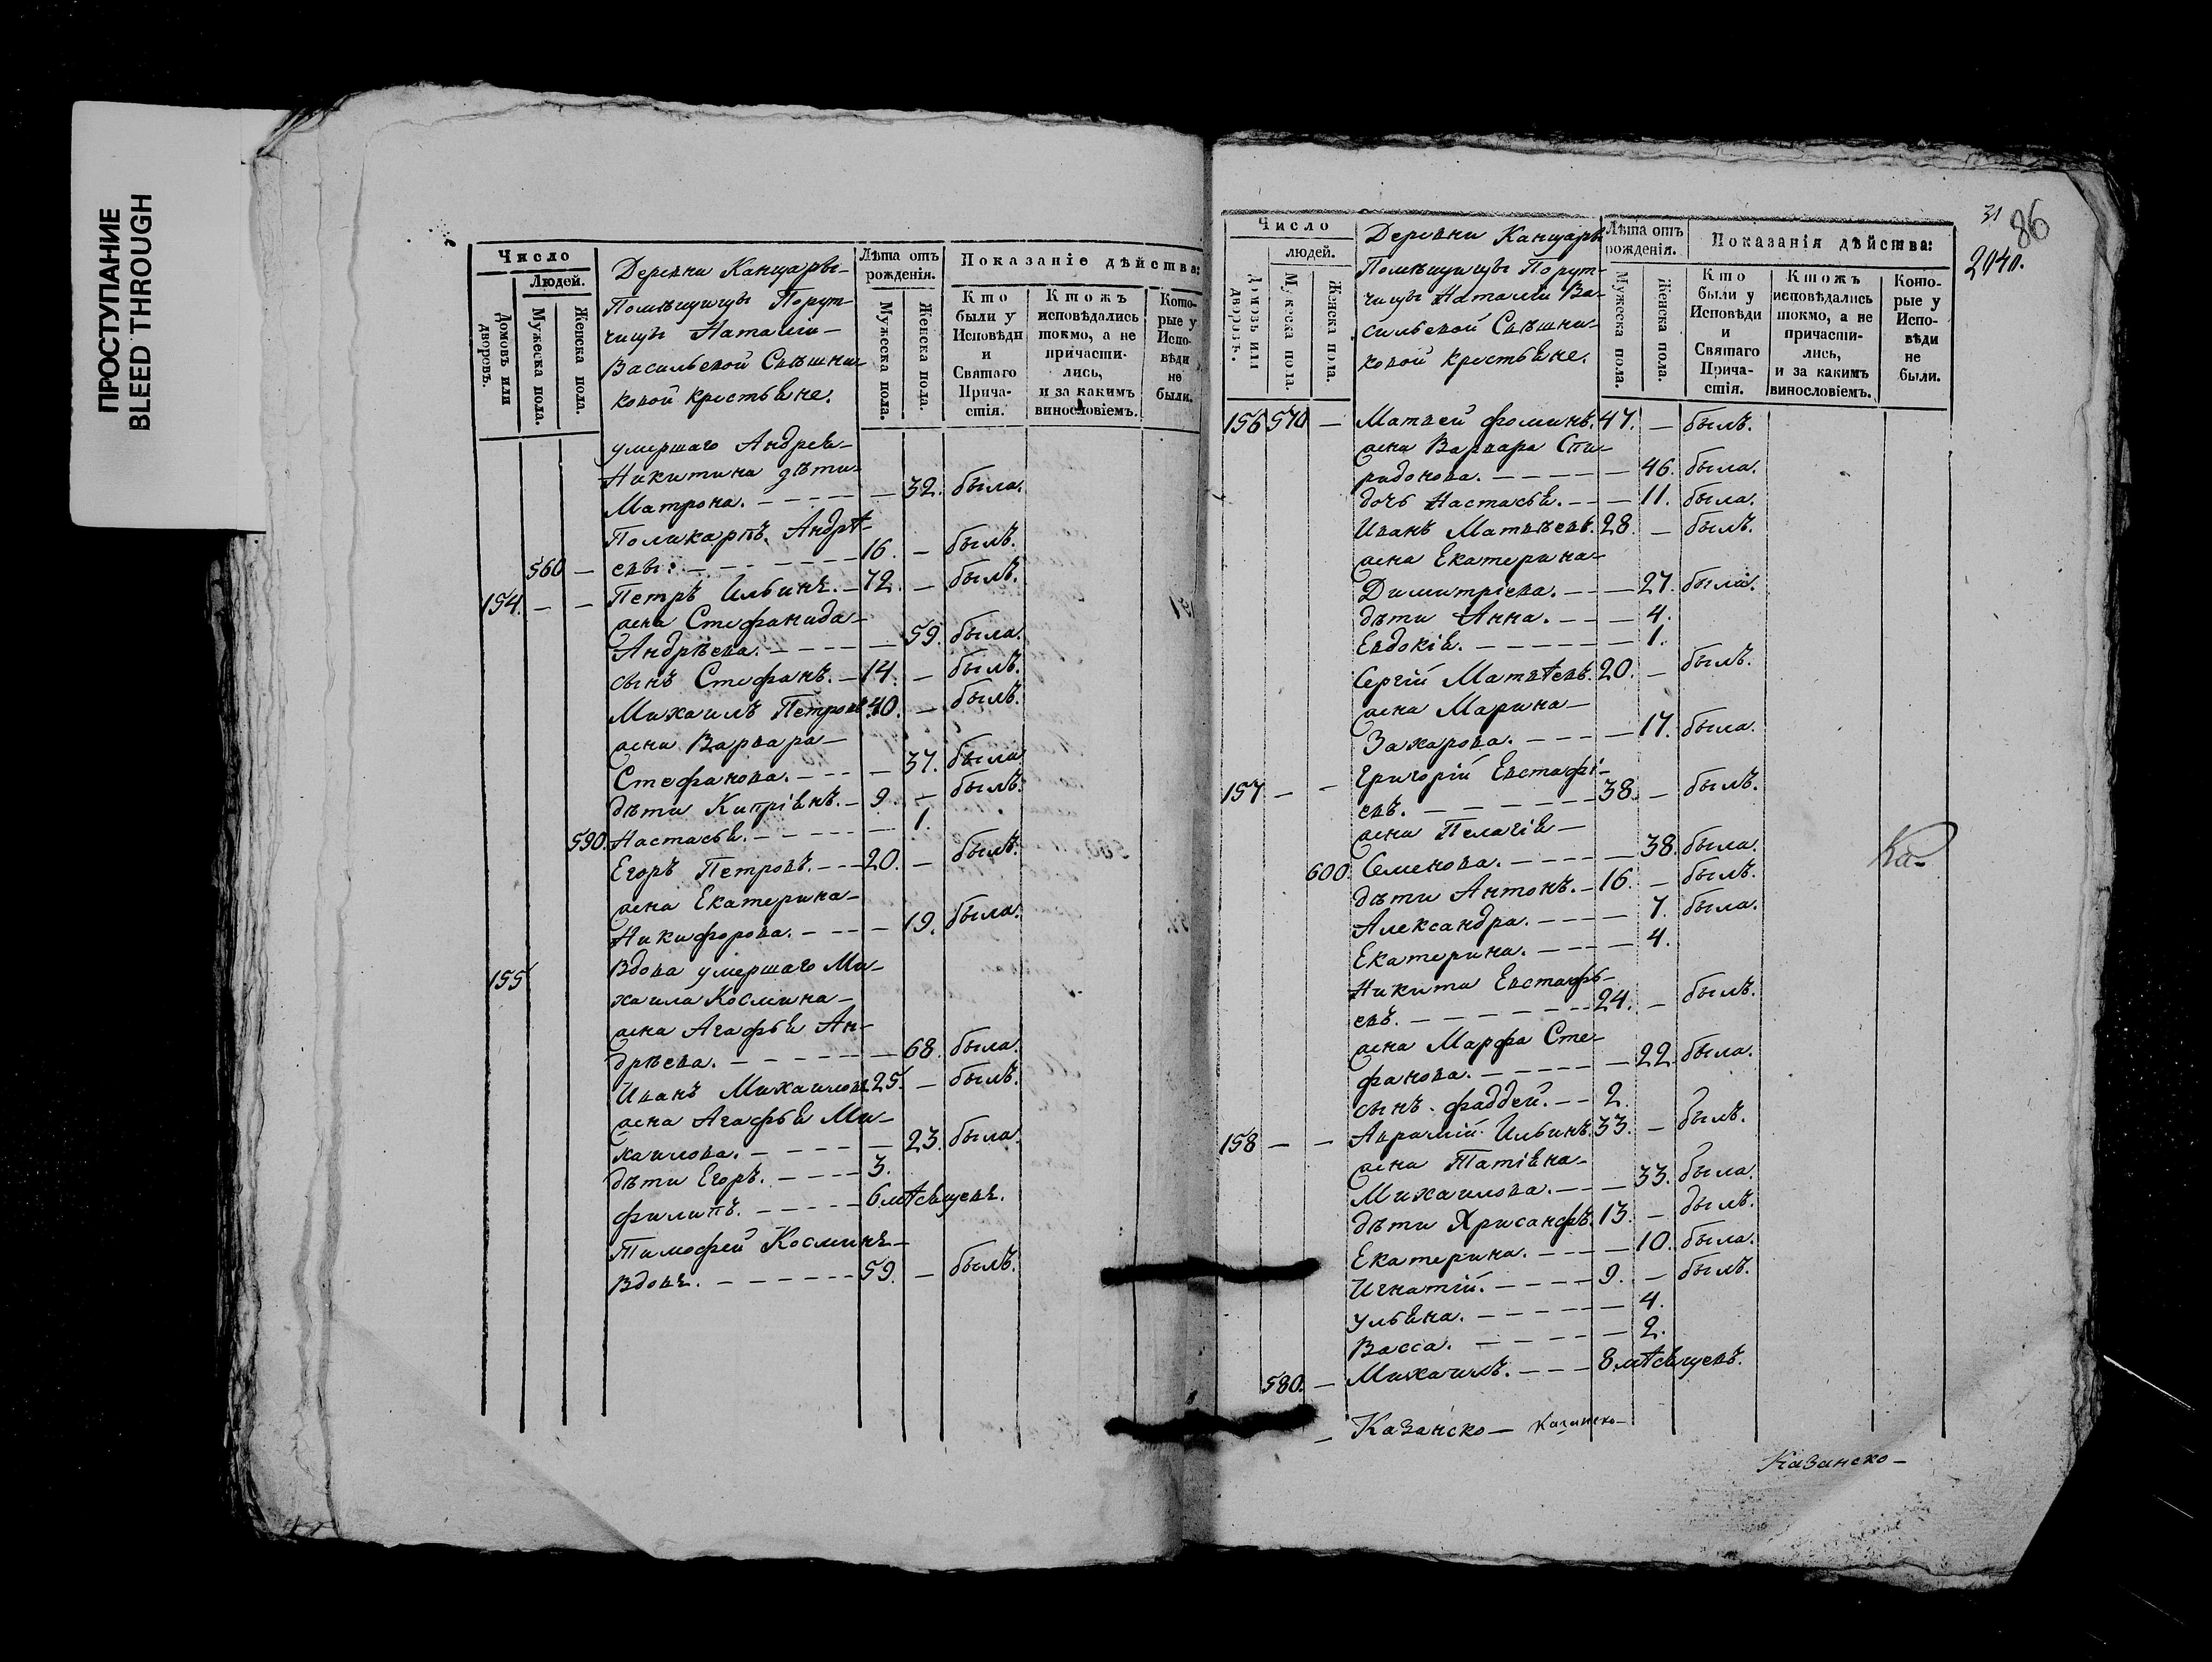 ПРОСТУПАНИЕ
BLEED THROUGH
Число
Людей.
Домовъ или дворовъ.
Мужеска пола.
Женска пола.
Деревни Канцары
Помѣщицы Порут-
чицы Наталіи
Васильевой Свѣшни-
ковой крестьяне.
Лѣта отъ рожденія.
Мужеска пола.
Женска пола.
Показаніе дѣйства:
Кто были у Исповѣди и Святаго Прича-стія.
Ктожъ исповѣдались токмо, а не причасти-лись, и за какимъ винословіемъ.
Кото-рые у Испо-вѣди не были.
умершаго Андрея
Никитина дѣти
Матрона. — 32. была.
Поликарпъ Андрѣ-
560 — евы. 16. — былъ.
154. — — Петръ Ильинъ. 72. — былъ.
жена Стефанида
Андрѣева. — 59. была.
сынъ Стефанъ. 14. — былъ.
Михаилъ Петровъ 40. — былъ.
жена Варвара
Стефанова. — 37. была
дѣти Кипріянъ. 9. — былъ.
590. Настасья. — 1.
Егоръ Петровъ. 20. — былъ.
жена Екатерина
Никифорова. — 19. была.
155 Вдова умершаго Ми-
хаила Космина
жена Агафья Ан-
дрѣева. — 68. была.
Иванъ Михаиловъ 25. — былъ.
жена Агафья Ми-
хаилова. — 23. была.
дѣти Егоръ. 3.
Филипъ. 6 мѣсяцевъ.
Тимофей Косминъ
Вдовъ. 59. — былъ.
31
86
204 об.
Число
людей.
Домовъ или дворовъ.
Мужеска пола.
Женска пола.
Деревни Канцары
Помѣщицы Порут-
чицы Наталіи Ва-
сильевой Свѣшни-
ковой крестьяне.
Лѣта отъ рожденія.
Мужеска пола.
Женска пола.
Показанія дѣйства:
Кто были у Исповѣди и Святаго Прича-стія.
Ктожъ исповѣдались токмо, а не причасти-лись, и за какимъ винословіемъ.
Кото-рые у Испо-вѣди не были.
156 570 — Матвей Фоминъ. 47. — былъ.
жена Варвара Спи-
ридонова. — 46. была.
дочь Настасья. — 11. была.
Иванъ Матвѣевъ. 28. — былъ.
жена Екатерина
Димитріева. — 27. была.
дѣти Анна. — 4.
Евдокія. — 1.
Сергій Матвѣевъ. 20. — былъ.
жена Марина
Захарова. — 17. была.
157 — — Григорій Евстафі-
евъ. 38. — былъ.
жена Пелагія
600. Семенова. — 38. была.
дѣти Антонъ. 16. — былъ.
Александра. — 7. была.
Екатерина. — 4.
Никита Евстафь-
евъ. 24. — былъ.
жена Марфа Сте-
фанова. — 22. была.
сынъ Фаддей. 2.
158 — — Аврамій Ильинъ. 33. — былъ.
жена Татіяна
Михаилова. — 33. была.
дѣти Хрисанфъ. 13. — былъ.
Екатерина. — 10. была.
Игнатій. 9. — былъ.
Ульяна. — 4.
Васса. — 2.
580. — Михаилъ. 8 мѣсяцевъ.
Ка-
Казанско— Казанско—
Казанско—